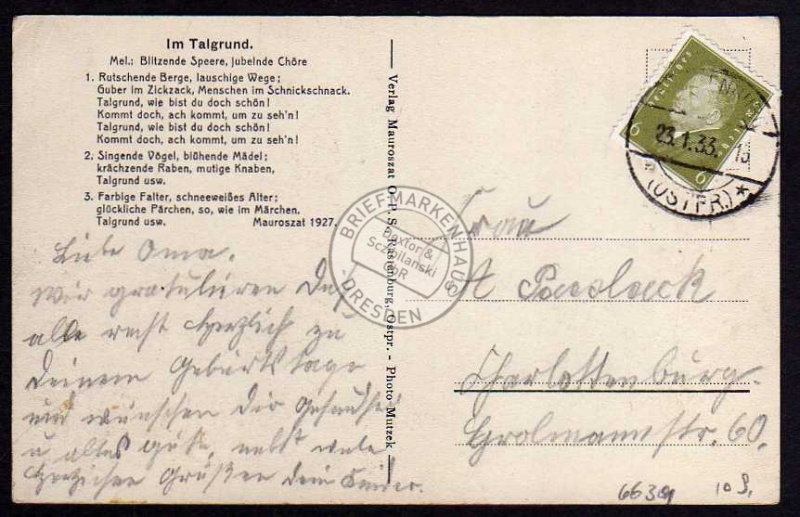 Im Talgrund.
Mel.: Blitzende Speere, jubelnde Chöre
1. Rutschende Berge, lauschige Wege;
Guber im Zickzack, Menschen im Schnickschnack.
Talgrund, wie bist du doch schön!
Kommt doch, ach kommt, um zu seh'n!
Talgrund, wie bist du doch schön!
Kommt doch, ach kommt, um zu seh'n!
2. Singende Vögel, blühende Mädel;
krächzende Raben, mutige Knaben,
Talgrund usw.
3. Farbige Falter, schneeweißes Alter;
glückliche Pärchen, so, wie im Märchen.
Talgrund usw. Mauroszat 1927.
Liebe Oma.
Wir gratulieren Dir
alle recht herzlich zu
Deinem Geburtstage
und wünschen Dir Gesundheit
u alles gute, nebst viele
herzlichen Grüßen Dein Kinder.
Verlag Mauroszat O.-P. S., Rastenburg, Ostpr. - Photo Mutzek
6 6
23.1.33.
(OSTPR.) *
Frau
A
Charlottenburg.
Grolmannstr. 60.
BRIEFMARKENHAUS
Dextor &
Sczpilanski
GbR
DRESDEN